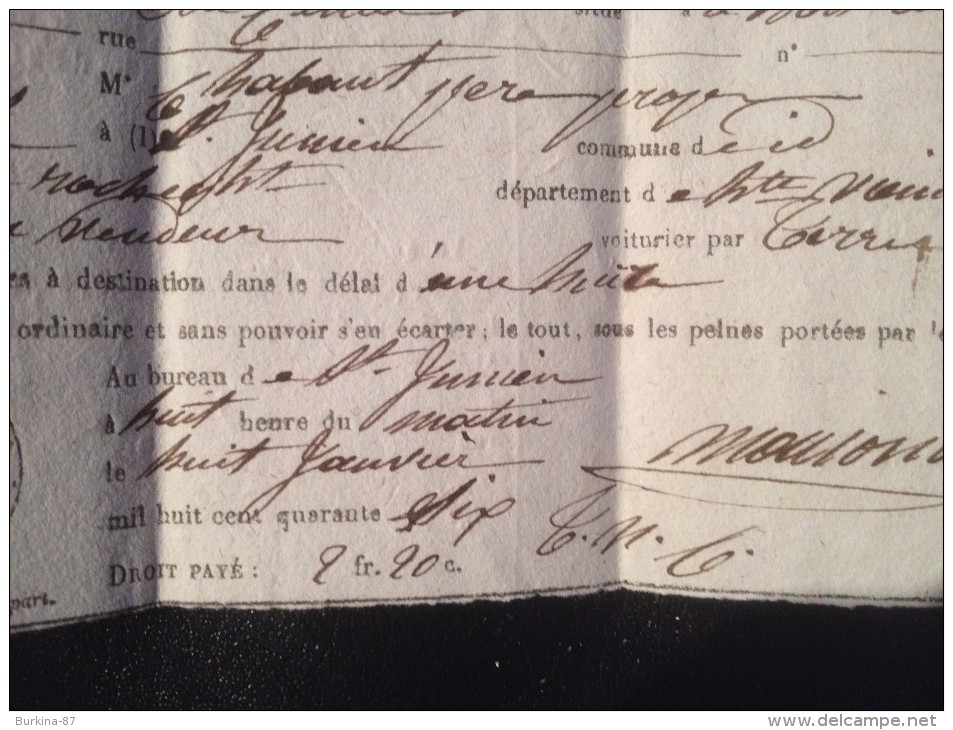 situé à
rue n°
Mr Chabaut père propre
à (1) St. Junien commune de id
rochefort département de Hte Vien
vendeur voiturier par Terre
es à destination dans le délai d'une huite
ordinaire et sans pouvoir s'en écarter; le tout, sous les peines portées par l
Au bureau de St. Junien
à huit heure du matin
le huit Janvier
mil huit cent quarante Six
DROIT PAYÉ: 2 fr. 20 c.
part.
Burkina-87
www.delcampe.net